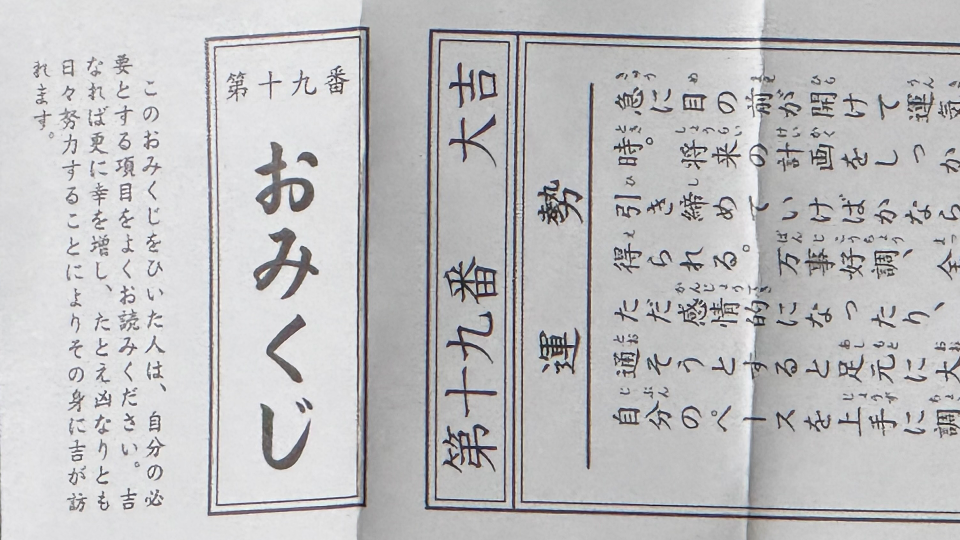 第十九番
おみくじ
このおみくじをひいた人は、自分の必
要とする項目をよくお読みください。吉
なれば更に幸を増し、たとえ凶なりとも
日々努力することによりその身に吉が訪
れます。
第十九番 大吉
運勢
急に目の前が開けて運気
時。将来の計画をしっか
引き締めていけばかなら
得られる。万事好調、全
ただ感情的になったり、
通そうとすると足元に大
自分のペースを上手に調